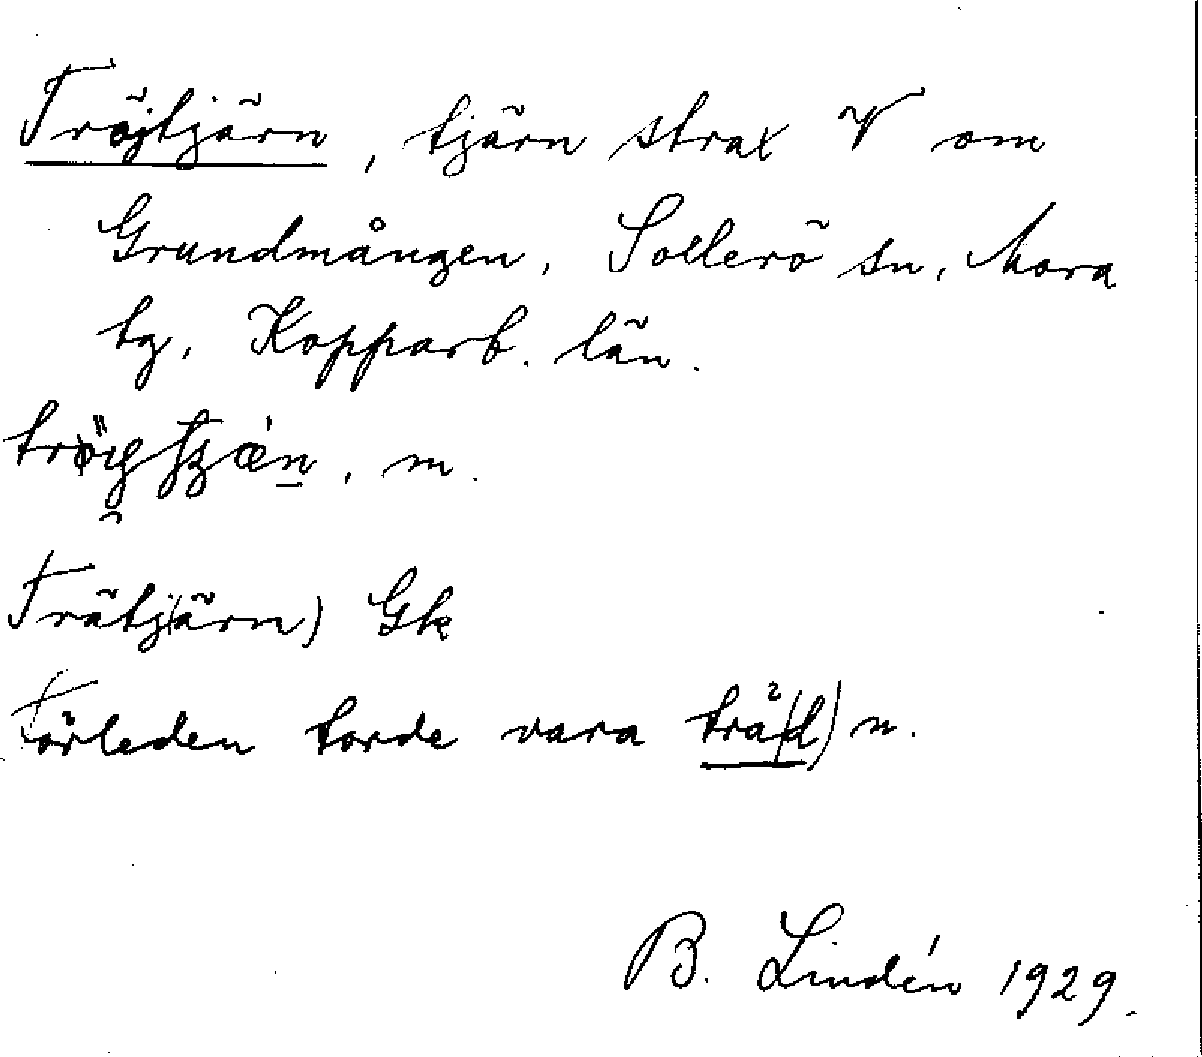 Tröjtjärn, tjärn strax V om
Grundmången, Sollerö sn, Mora
tg, Kopparb. län.
, m.
Trätj(ärn) Gk
Förleden torde vara trä(d) n.
B. Lindén 1929.